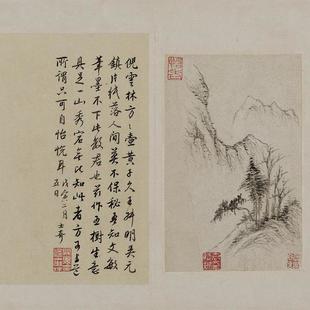 倪雲林方〻壺黃子久王叔明吳元
鎮片紙落人間莫不保秘知文敏
筆墨不下此數君也作五樹生意
具足一山秀無比知此者方可與
所謂只可自怡悅耳戊寅二月士奇
五日